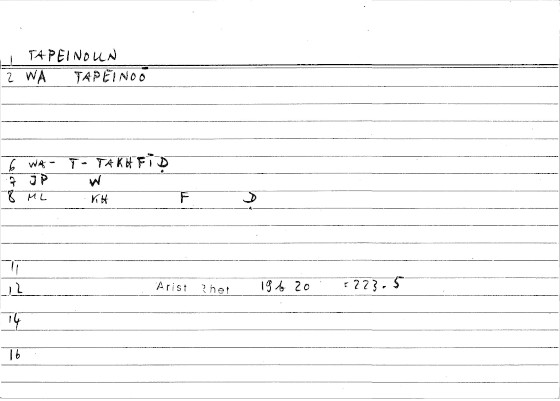 1 TAPEINOUN
2 WA TAPEINOŌ
6 WA- T- TAKHFĪḌ
7 JP W
8 ML KH F Ḍ
11
12 Arist Rhet 19 20 =223.5
14
16